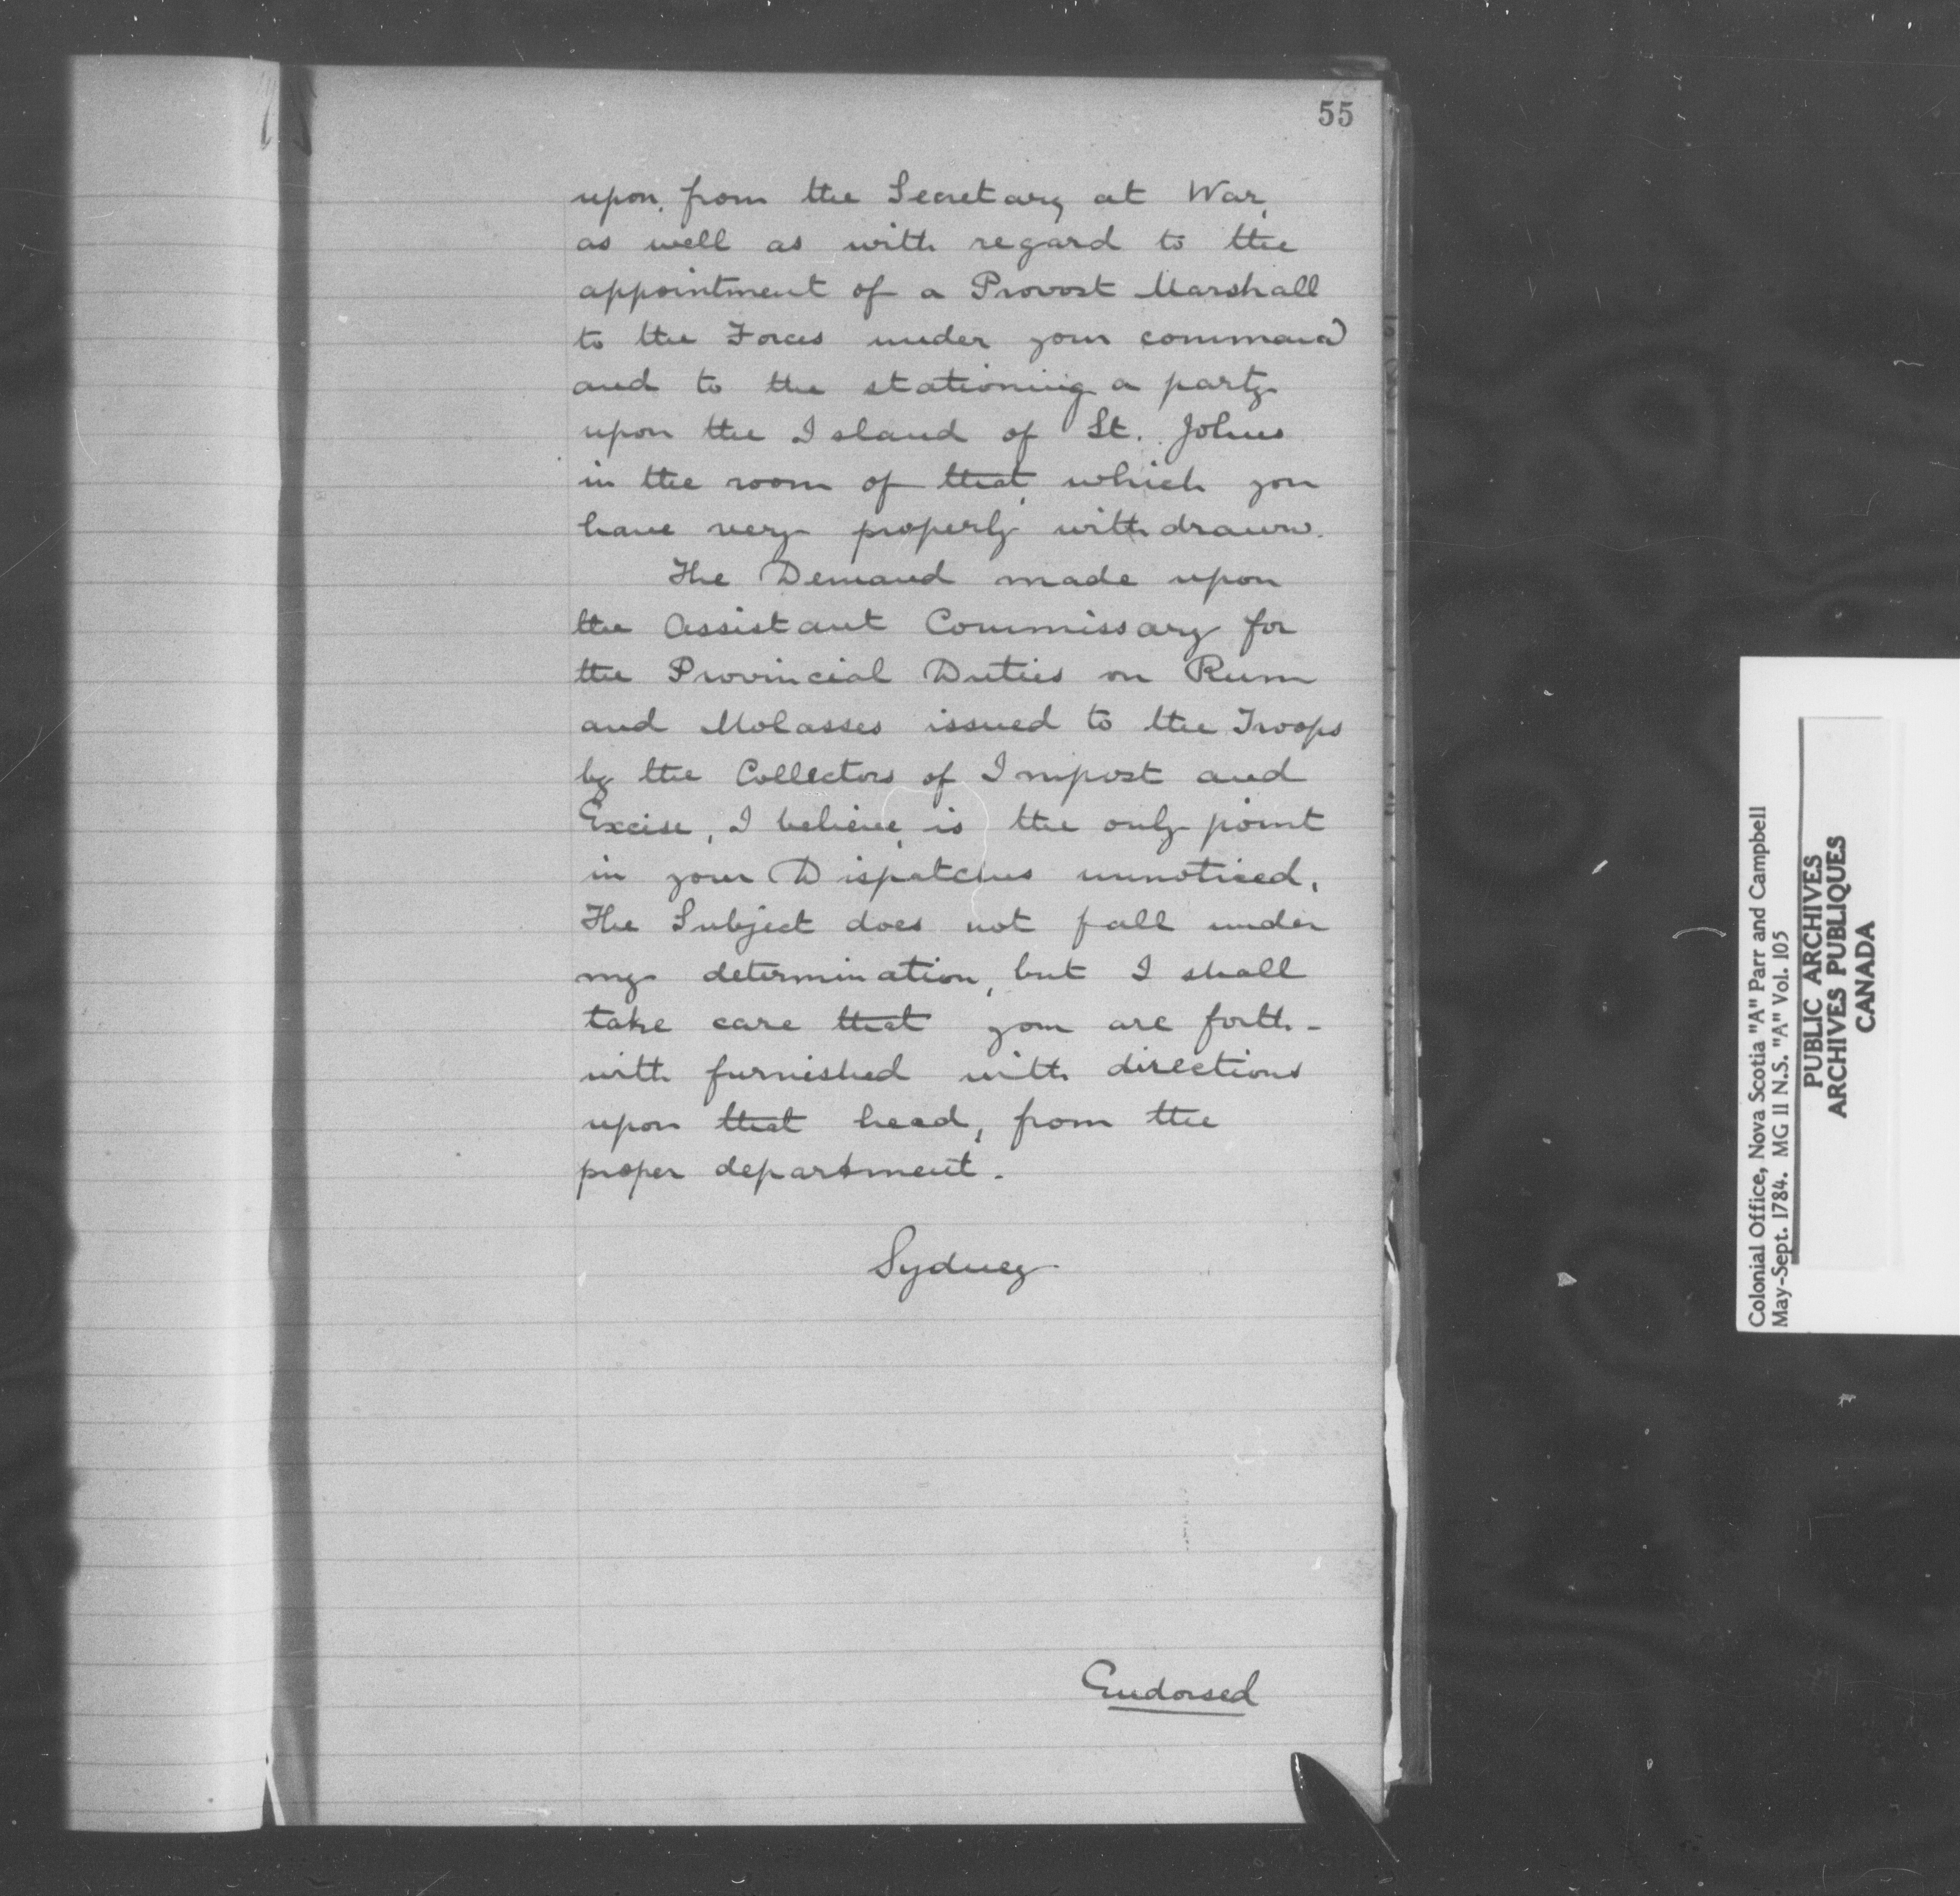 55
upon, from the Secretary at War,
as well as with regard to the
appointment of a Provost Marshall
to the Forces under your command
and to the stationing a party
upon the Island of St. Johns
in the room of that, which you
have very properly withdrawn.
The Demand made upon
the Assistant Commissary for
the Provincial Duties on Rum
and Molasses issued to the Troops
by the Collectors of Impost and
Excise, I believe, is the only point
in your Dispatches unnoticed.
The Subject does not fall under
my determination, but I shall
take care that you are forth-
with furnished with directions
upon that head, from the
proper department.
Sydney
Endorsed
Colonial Office, Nova Scotia "A" Parr and Campbell
May-Sept. 1784. MG 11 N.S. "A" Vol. 105
PUBLIC ARCHIVES
ARCHIVES PUBLIQUES
CANADA